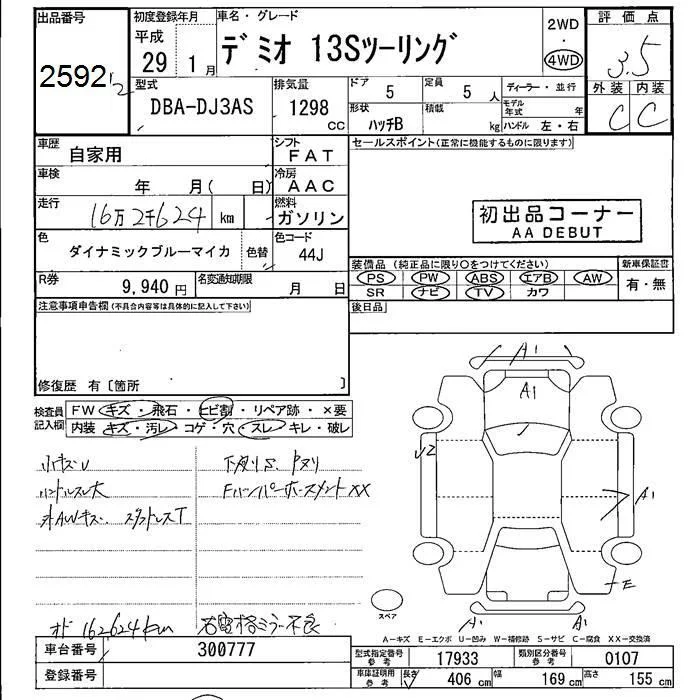 出品番号
2592
初度登録年月
平成
29 1月
車名・グレード
デミオ 13Sツーリング
2WD
・
4WD
評価点
3.5
外装 内装
C C
型式
DBA-DJ3AS
排気量
1298
CC
ドア
5
定員
5 人
形状
ハッチB
積載
kg
ディーラー・並行
モデル年式 年
ハンドル 左・右
車歴
自家用
シフト
FAT
車検
年 月( 日)
冷房
AAC
走行
16万2千624 km
燃料
ガソリン
色
ダイナミックブルーマイカ
色替
色コード
44J
R券
9,940 円
名変通知期限
月 日
セールスポイント(正常に機能するものに限ります)
初出品コーナー
AA DEBUT
装備品(純正品に限り○をつけてください)
PS PW ABS エアB AW
SR ナビ TV カワ
新車保証書
有・無
後日品
注意事項申告欄(不具合内容等は具体的に記入して下さい)
修復歴 有〔箇所 〕
検査員
記入欄
FW キズ・飛石・ヒビ割・リペア跡・×要
内装 キズ・汚レ・コゲ・穴・スレ・キレ・破レ
小キズU
ハンドルスレ大
オAWキズ スタッドレスT
下廻りS
FバンパーホースメントXX
オド 162624km
右電格ミラー不良
A1
A1
U2
A1
E
A1
A1
スペア
A-キズ E-エクボ U-凹み W-補修跡 S-サビ C-腐食 XX-交換済
車台番号
300777
登録番号
型式指定番号
参考
17933
類別区分番号
参考
0107
車庫証明用
参考
長さ
406 cm
幅
169 cm
高さ
155 cm